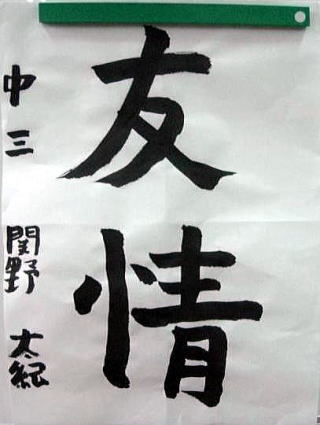 友情
中三 関野 太紀